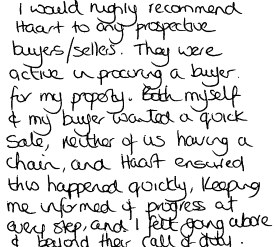 I would highly recommend
Haart to any prospective
buyers/sellers. They were
active in procuring a buyer
for my property. Both myself
& my buyer wanted a quick
sale, neither of us having a
chain, and Haart ensured
this happened quickly, keeping
me informed of progress at
every step, and I felt going above
& beyond their call of duty.